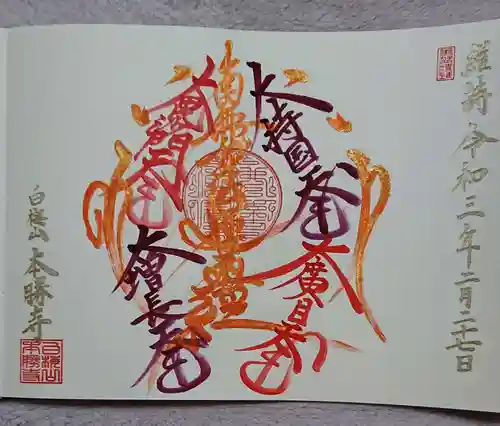 維持 令和三年二月二十七日
南無妙法蓮華経
大持国天王
大廣目天王
大毘沙門天王
大増長天王
白梅山 本勝寺